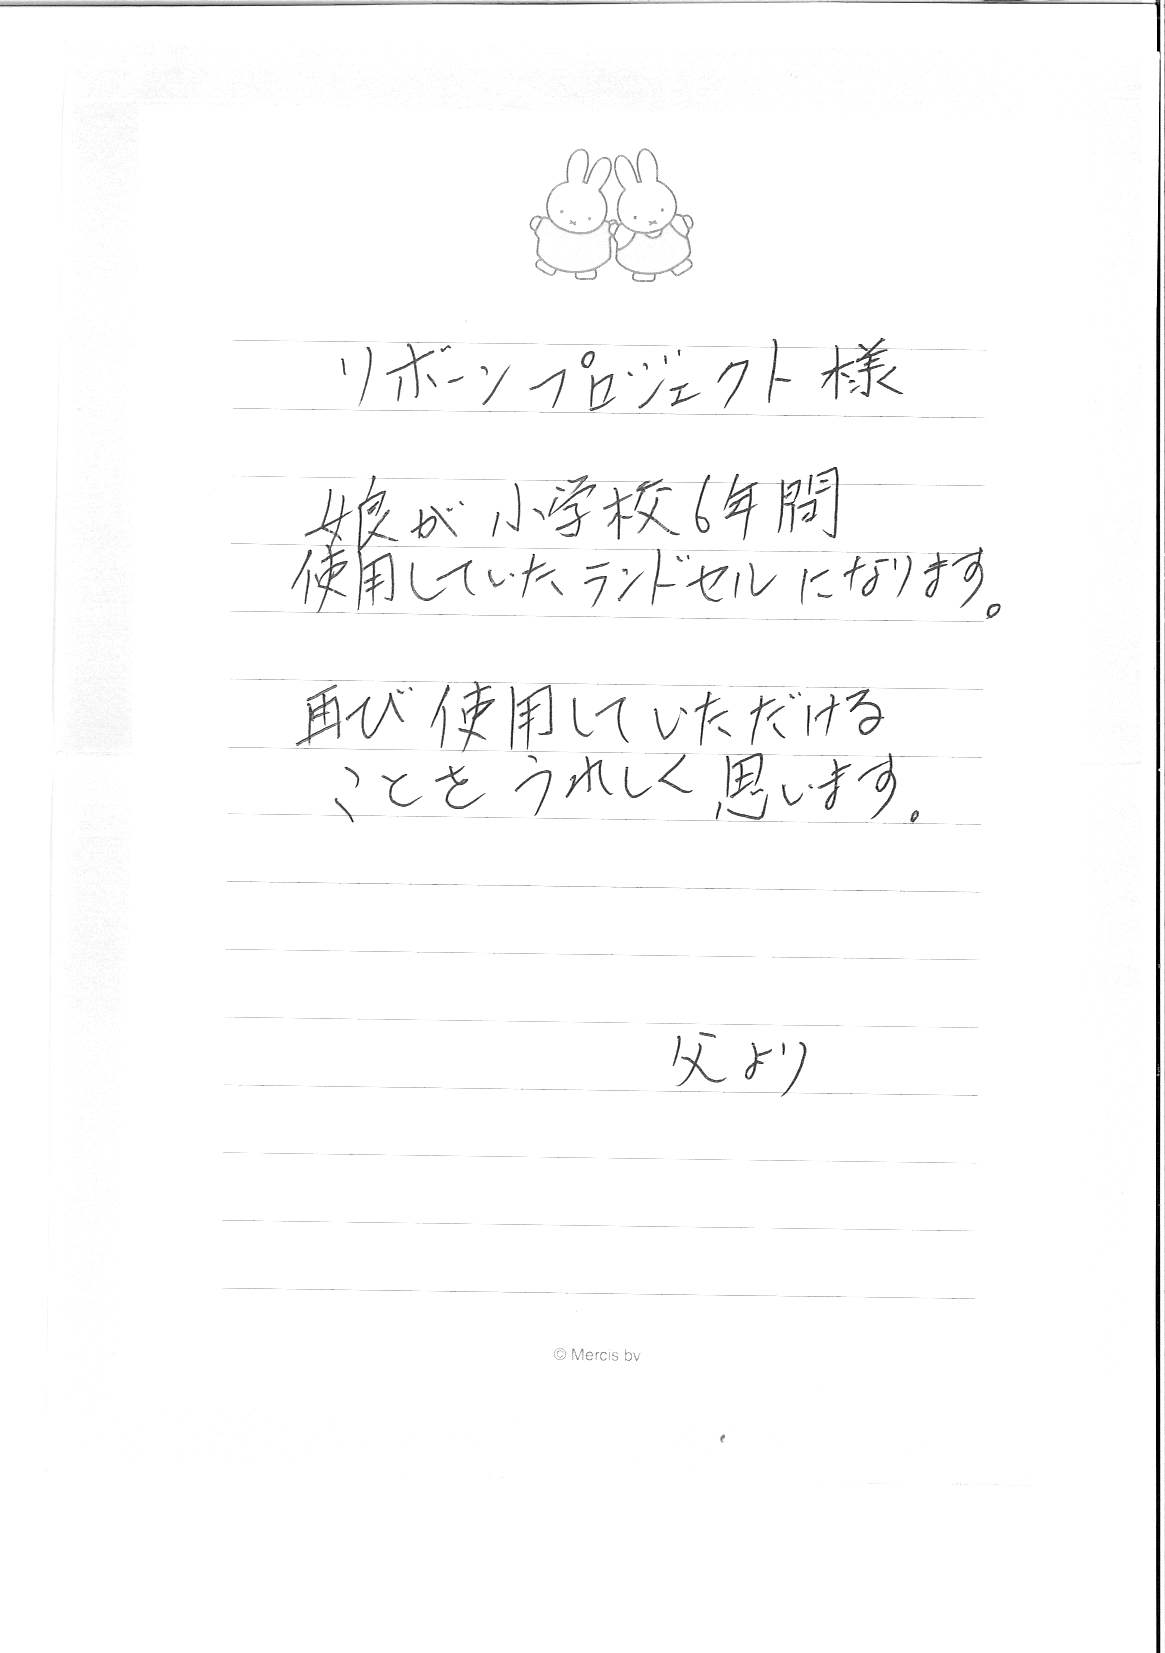 リボーンプロジェクト様
娘が小学校6年間
使用していたランドセルになります。
再び使用していただける
ことをうれしく思います。
父より
© Mercis bv